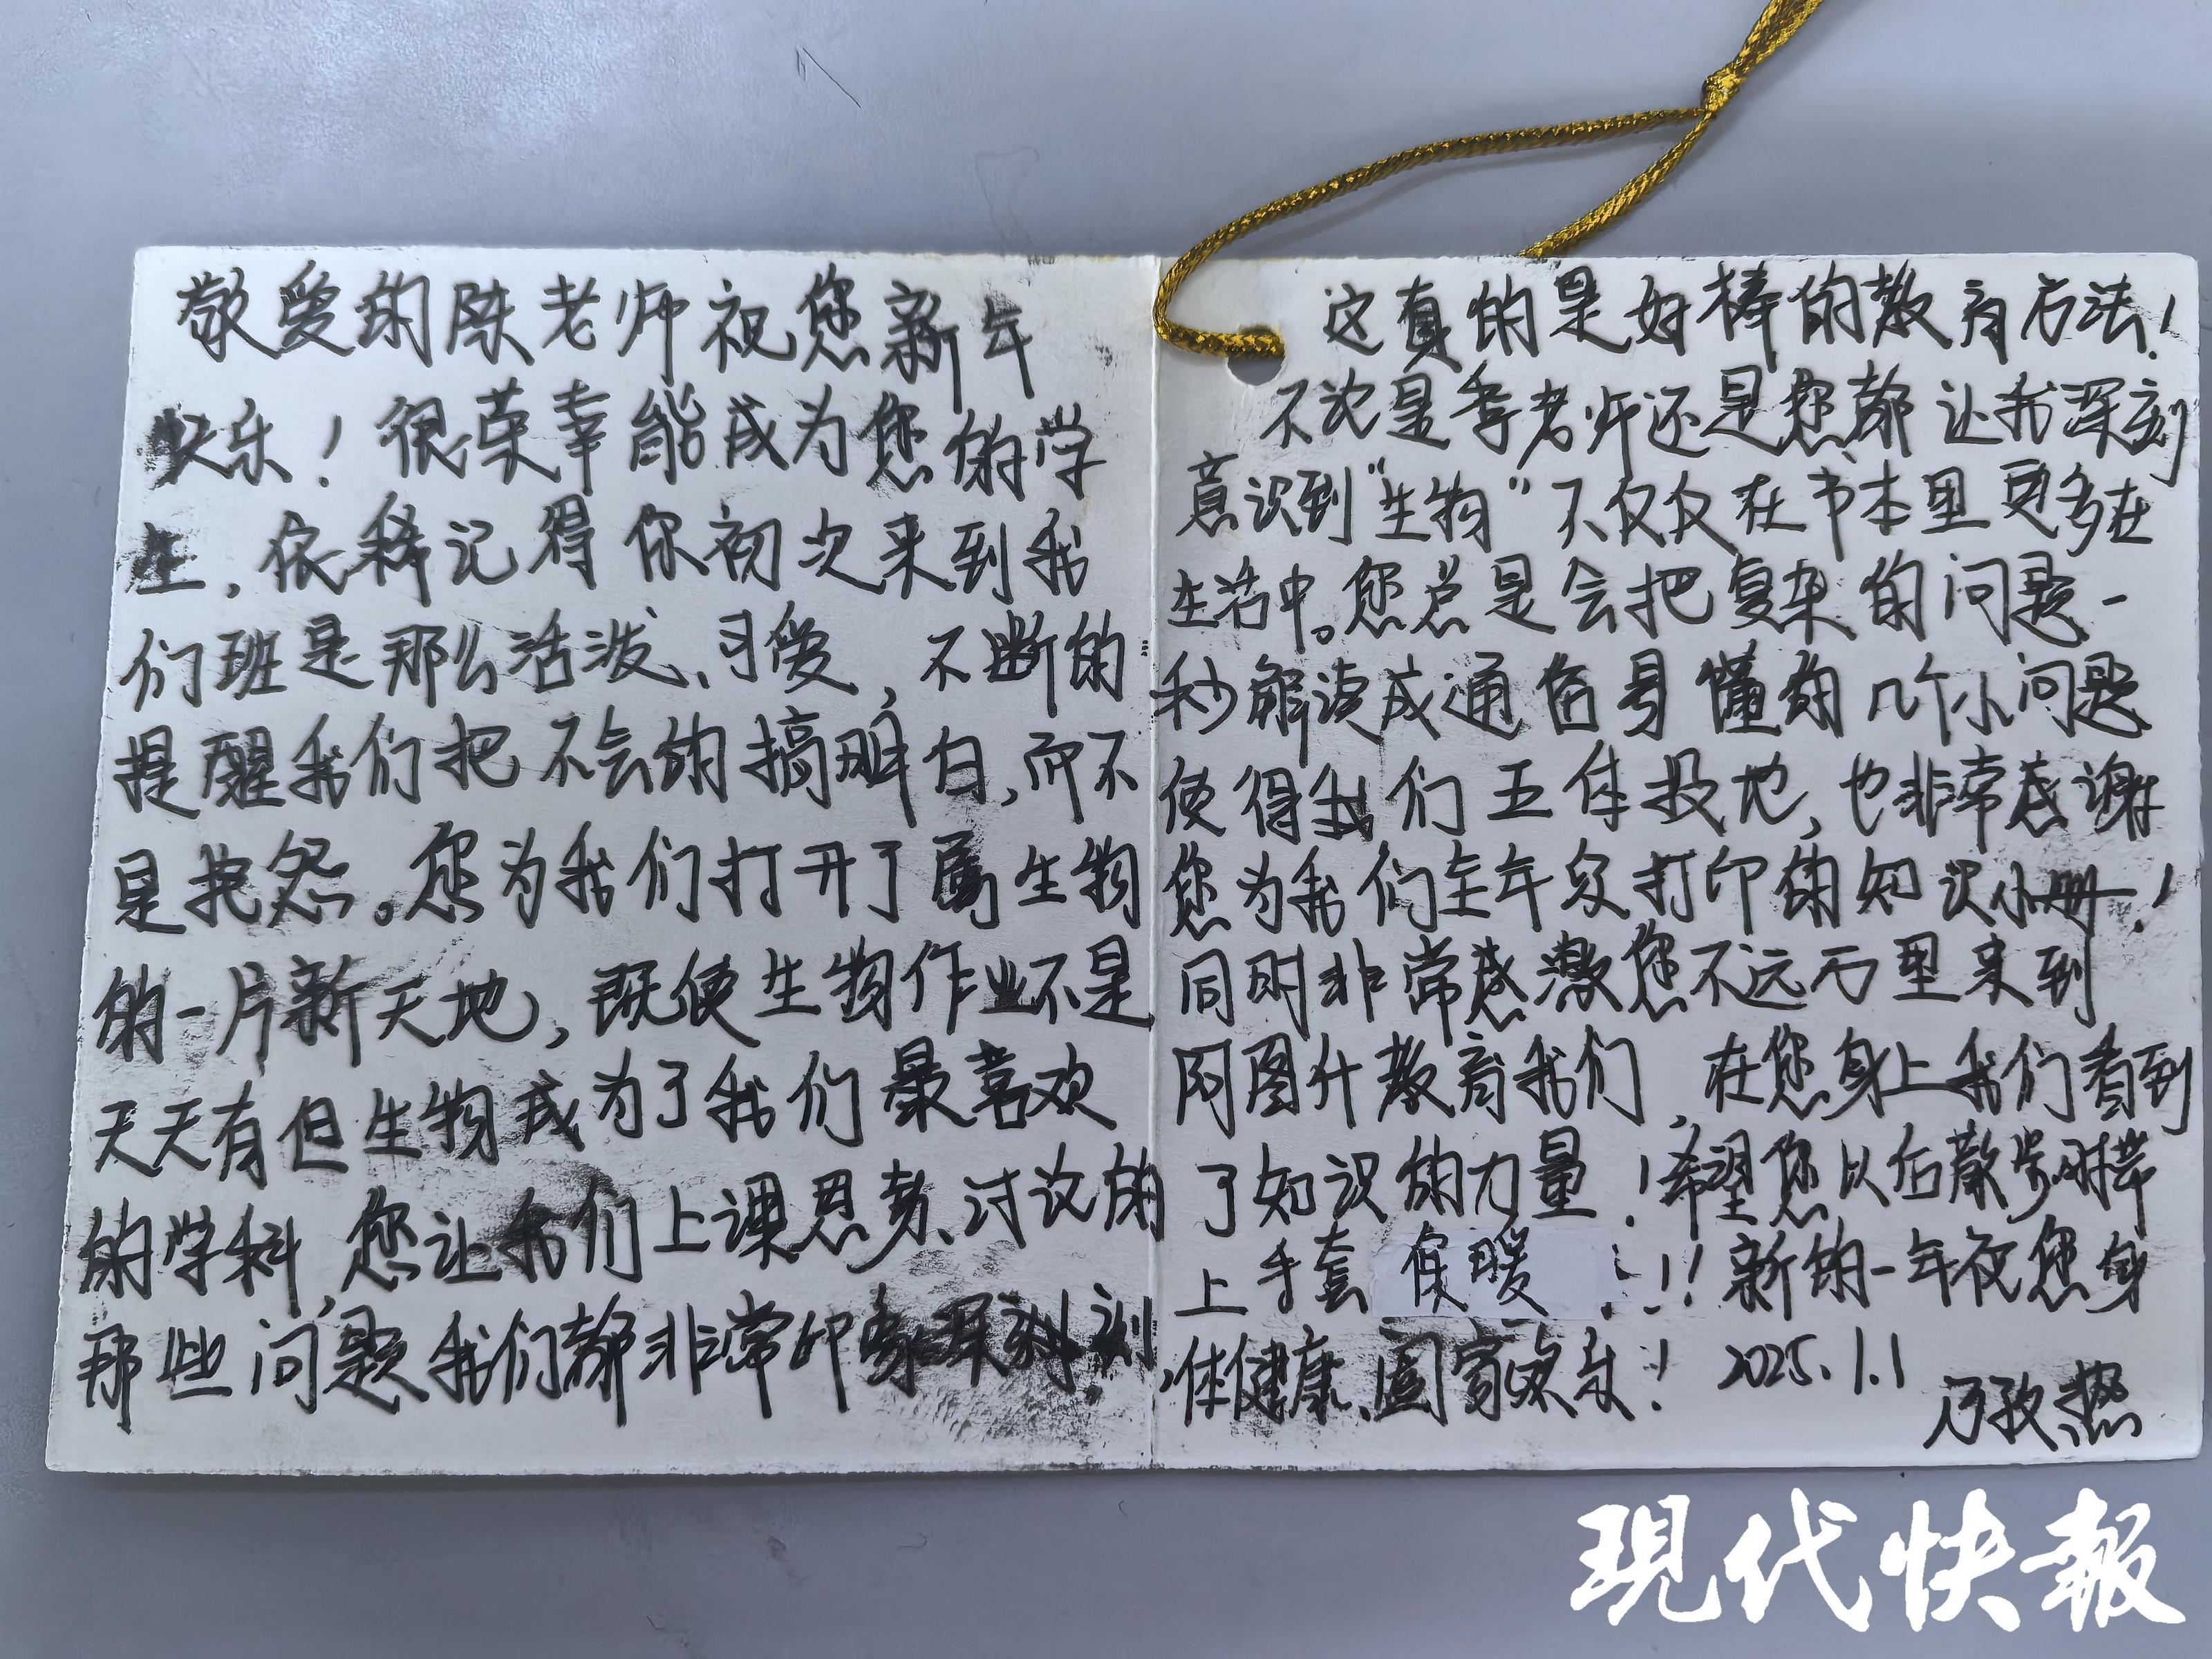 敬爱的陈老师祝您新年
快乐！很荣幸能成为您的学
生，依稀记得你初次来到我
们班是那么活泼、可爱，不断的
提醒我们把不会的搞明白，而不
是抱怨。您为我们打开了属生物
的一片新天地，既使生物作业不是
天天有但生物成为了我们最喜欢
的学科，您让我们上课思考、讨论的
那些问题我们都非常印象深刻
这真的是好棒的教育方法！
不论是李老师还是您都让我深刻
意识到“生物”不仅仅在书本里更多在
生活中。您总是会把复杂的问题一
秒解读成通俗易懂的几个小问题
使得我们五体投地，也非常感谢
您为我们全年级打印的知识小册！
同时非常感激您不远万里来到
阿图什教育我们，在您身上我们看到
了知识的力量！希望您以后散步时带
上手套保暖！！新的一年祝您身
体健康、阖家欢乐！2025.1.1
乃孜热
现代快報